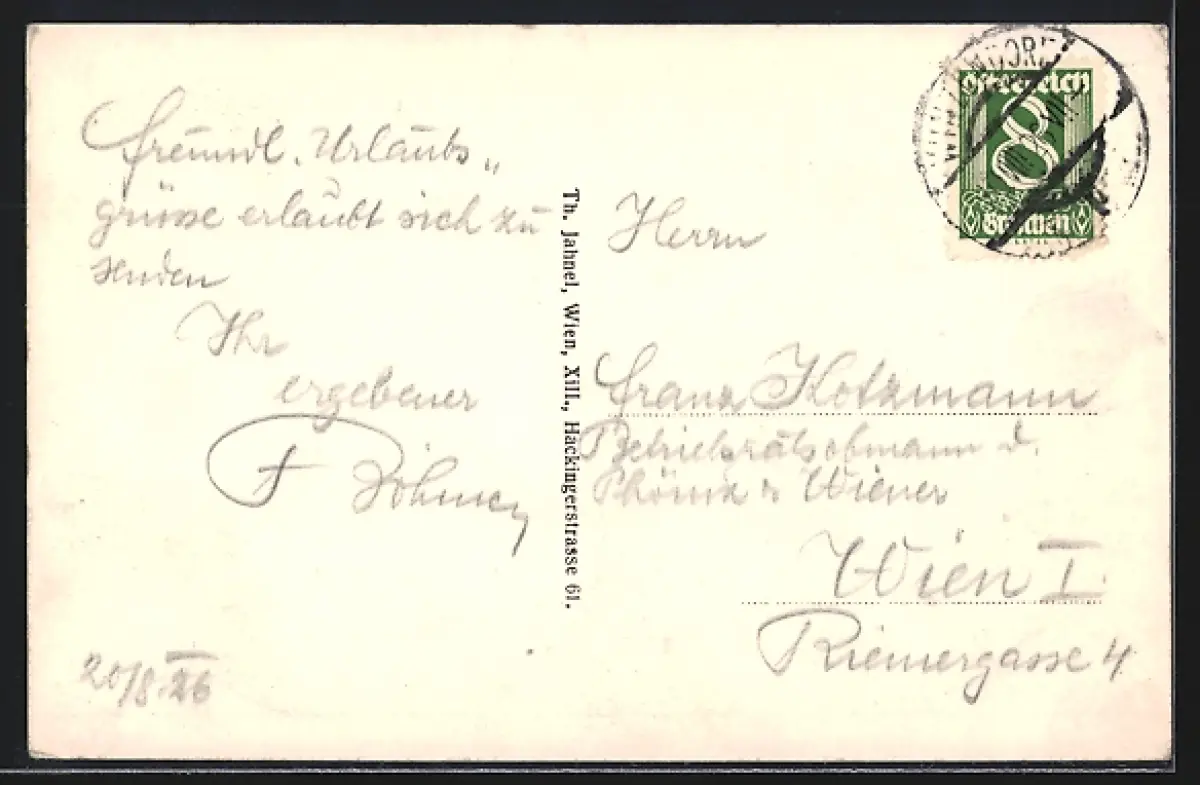 Freundl. Urlaubs„
grüsse erlaubt sich zu
senden
Ihr
ergebener
F
20/8. 26
Th. Jahnel, Wien, XIII., Hackingerstrasse 61.
österreich
8
Groschen
Herrn
Franz Kotzmann
Betriebsratsobmann d.
Phönix Wiener
Wien I.
Riemergasse 4